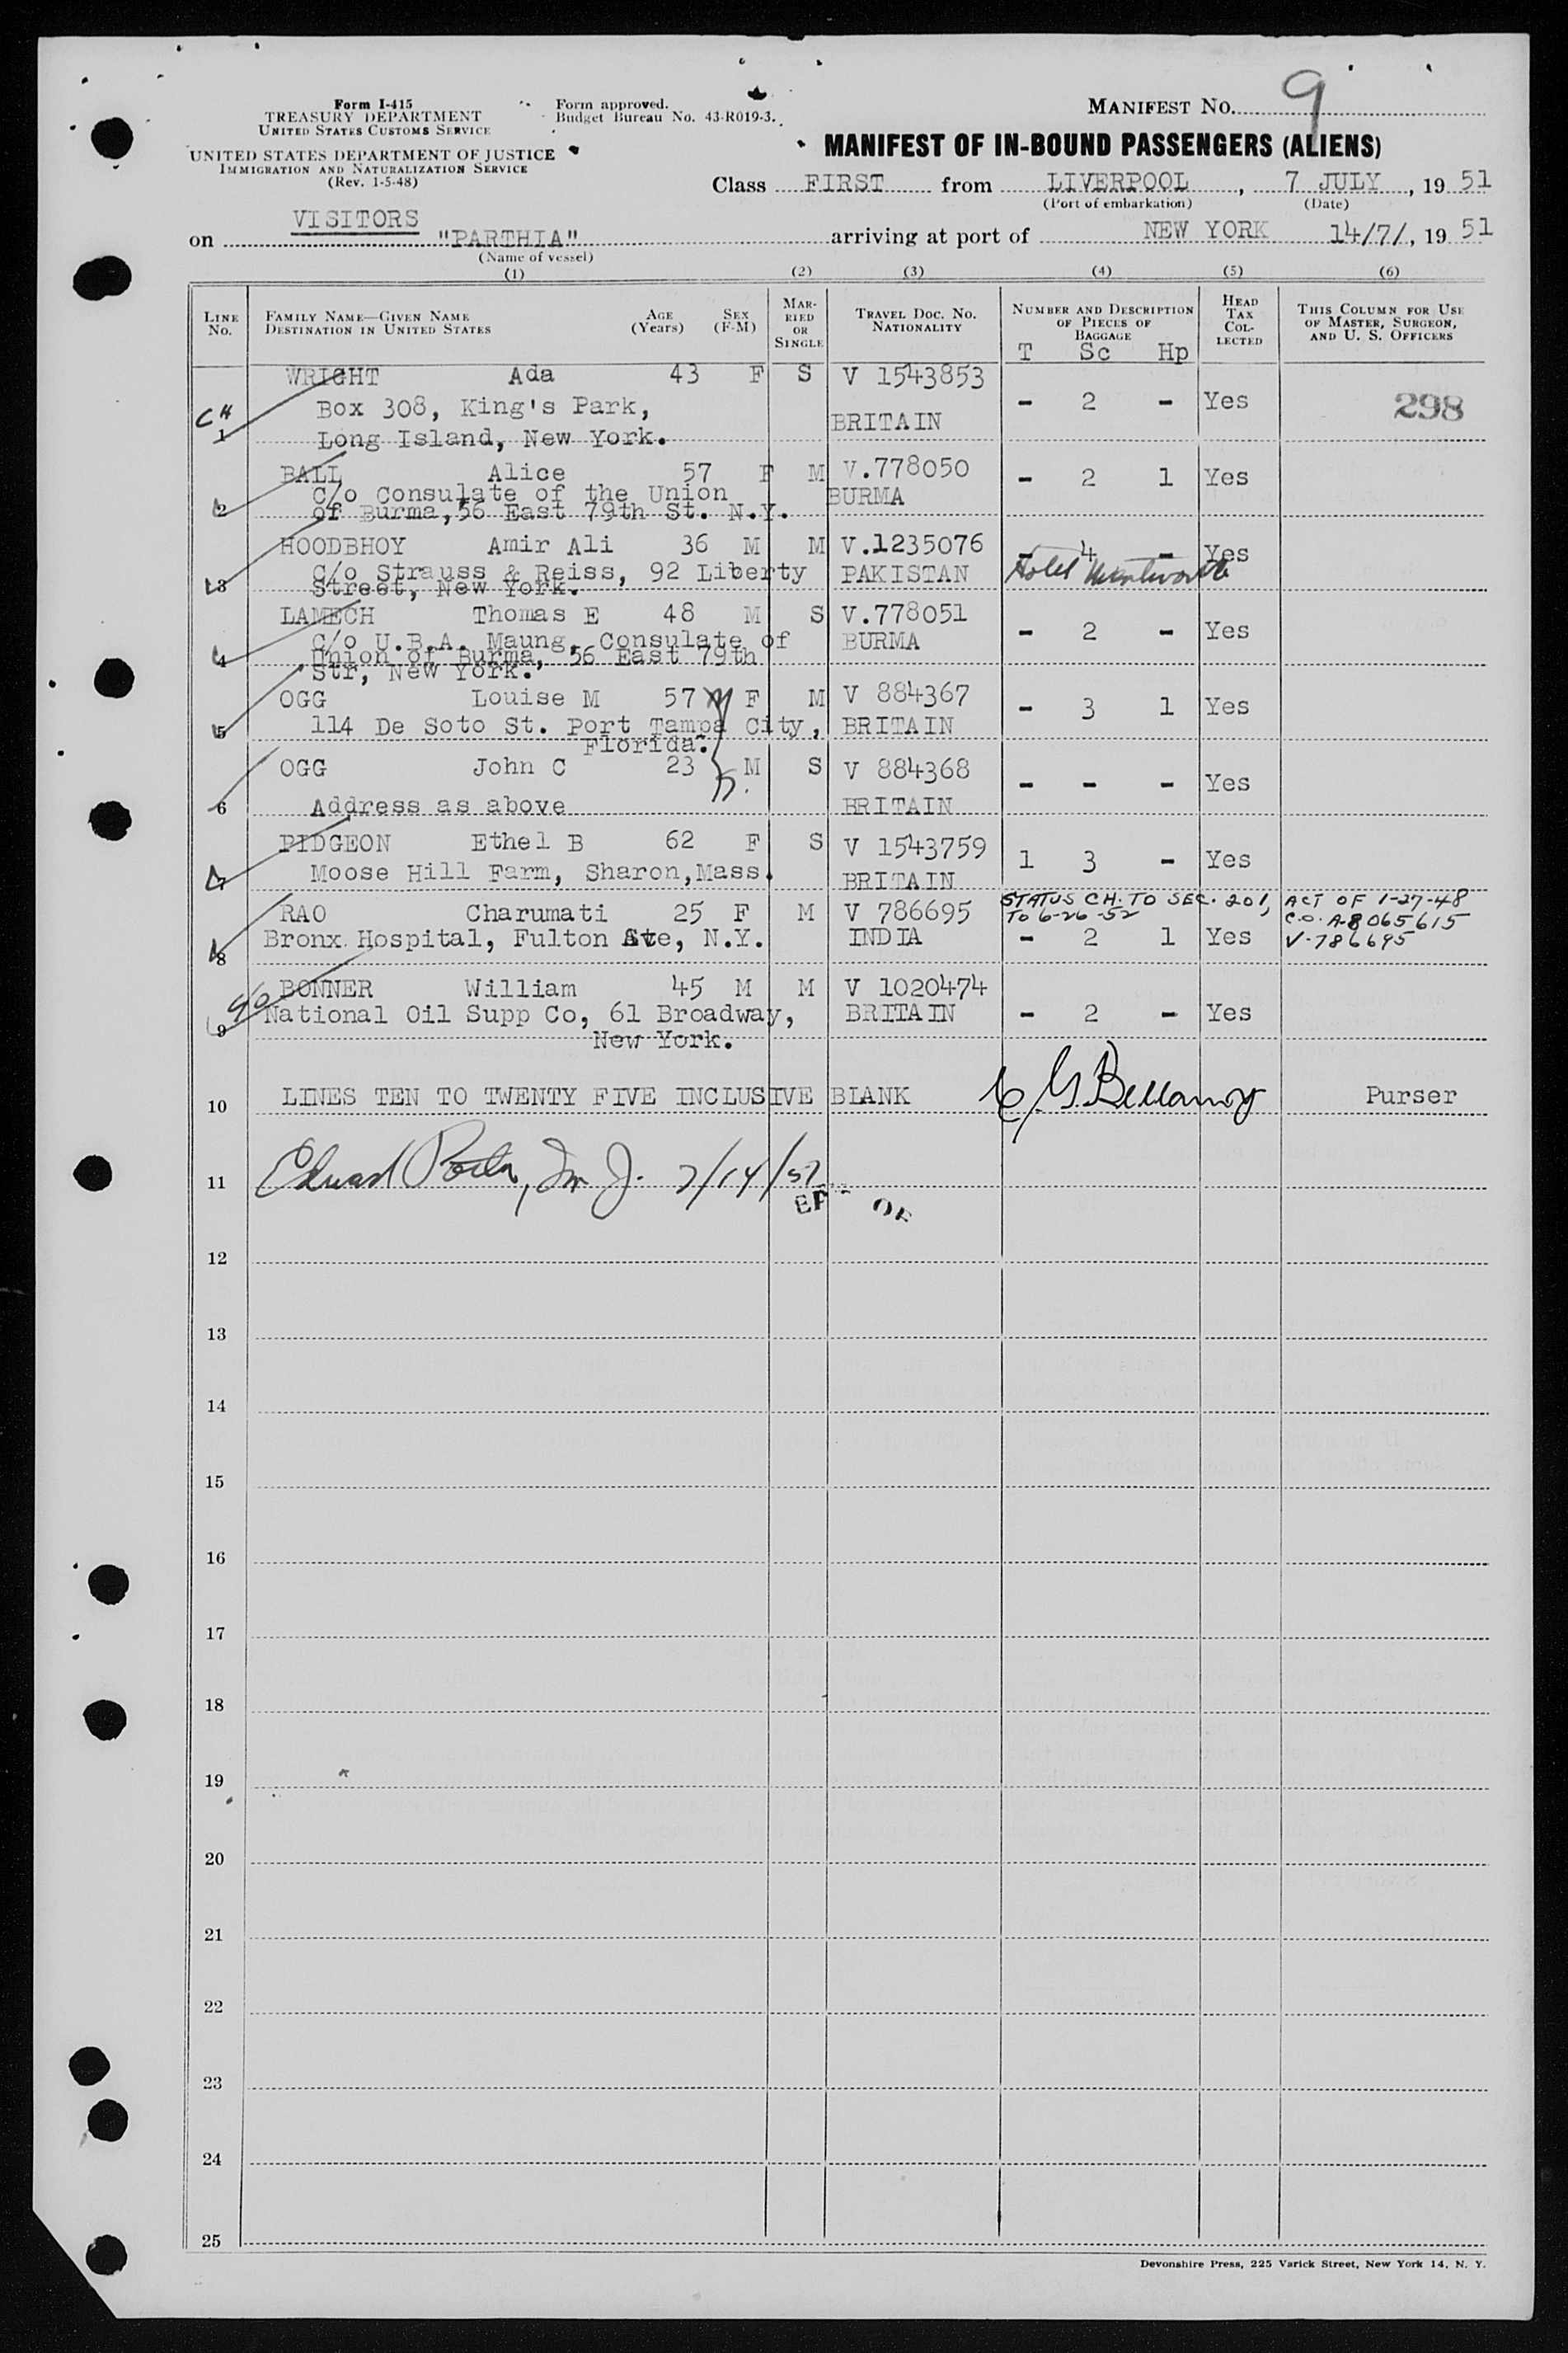 Form I-415
TREASURY DEPARTMENT
UNITED STATES CUSTOMS SERVICE
UNITED STATES DEPARTMENT OF JUSTICE
IMMIGRATION AND NATURALIZATION SERVICE
(Rev. 1-5-48)
Form approved.
Budget Bureau No. 43-R019-3.
MANIFEST No. 9
MANIFEST OF IN-BOUND PASSENGERS (ALIENS)
Class FIRST from LIVERPOOL, 7 JULY, 19 51
(Port of embarkation) (Date)
VISITORS
on "PARTHIA" arriving at port of NEW YORK 14/7/, 19 51
(Name of vessel)
(1) (2) (3) (4) (5) (6)
LINE No. FAMILY NAME—GIVEN NAME DESTINATION IN UNITED STATES AGE (Years) SEX (F-M) MARRIED OR SINGLE TRAVEL DOC. NO. NATIONALITY NUMBER AND DESCRIPTION OF PIECES OF BAGGAGE HEAD TAX COLLECTED THIS COLUMN FOR USE OF MASTER, SURGEON, AND U. S. OFFICERS
T Sc Hp
WRIGHT Ada 43 F S V 1543853
Box 308, King's Park, - 2 - Yes 298
1 Long Island, New York. BRITAIN
BALL Alice 57 F M V.778050 - 2 1 Yes
C/o Consulate of the Union BURMA
2 of Burma, 56 East 79th St. N.Y.
HOODBHOY Amir Ali 36 M M V.1235076 - 4 - Yes
C/o Strauss & Reiss, 92 Liberty PAKISTAN Hotel Wentworth
3 Street, New York.
LAMECH Thomas E 48 M S V.778051 - 2 - Yes
C/o U.B.A. Maung, Consulate of BURMA
4 Union of Burma, 56 East 79th
Str, New York.
OGG Louise M 57 F M V 884367 - 3 1 Yes
5 114 De Soto St. Port Tampa City, BRITAIN
Florida.
OGG John C 23 M S V 884368 - - - Yes
6 Address as above BRITAIN
PIDGEON Ethel B 62 F S V 1543759 1 3 - Yes
7 Moose Hill Farm, Sharon, Mass. BRITAIN
STATUS CH. TO SEC. 201, ACT OF 1-27-48
TO 6-26-52 C.O. A-8065615
V-786695
RAO Charumati 25 F M V 786695
8 Bronx Hospital, Fulton Ave, N.Y. INDIA - 2 1 Yes
c/o BONNER William 45 M M V 1020474
9 National Oil Supp Co, 61 Broadway, BRITAIN - 2 - Yes
New York.
10 LINES TEN TO TWENTY FIVE INCLUSIVE BLANK G. Bellamy Purser
11 Edward 7/14/51
OF
12
13
14
15
16
17
18
19
20
21
22
23
24
25
Devonshire Press, 225 Varick Street, New York 14, N. Y.